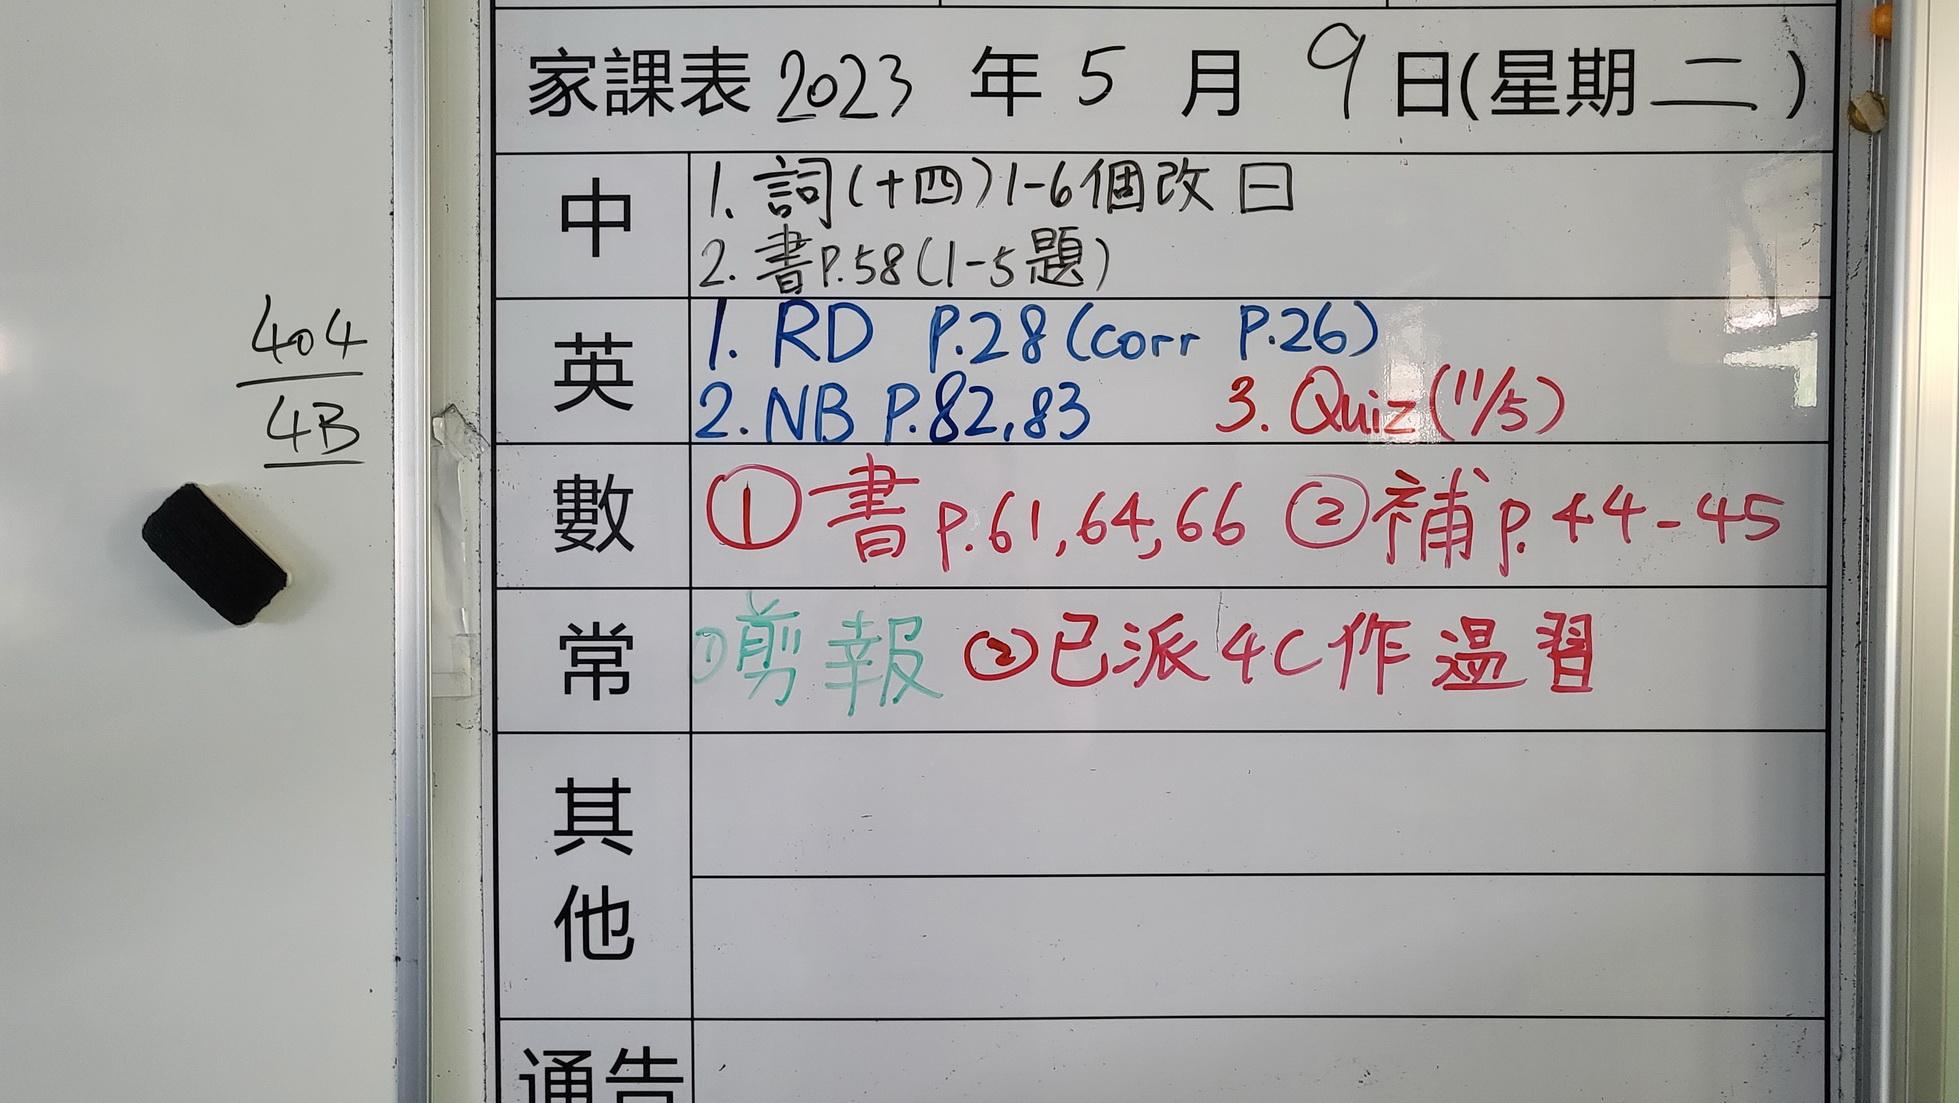 家課表 2023 年 5 月 9 日(星期二)
中
1. 詞(十四)1-6個改曰
2. 書P.58(1-5題)
404
4B
英
1. RD P.28(corr P.26)
2. NB P.82,83 3. Quiz(11/5)
數
①書p.61,64,66 ②補p.44-45
常
①剪報 ②已派4C作溫習
其他
通告